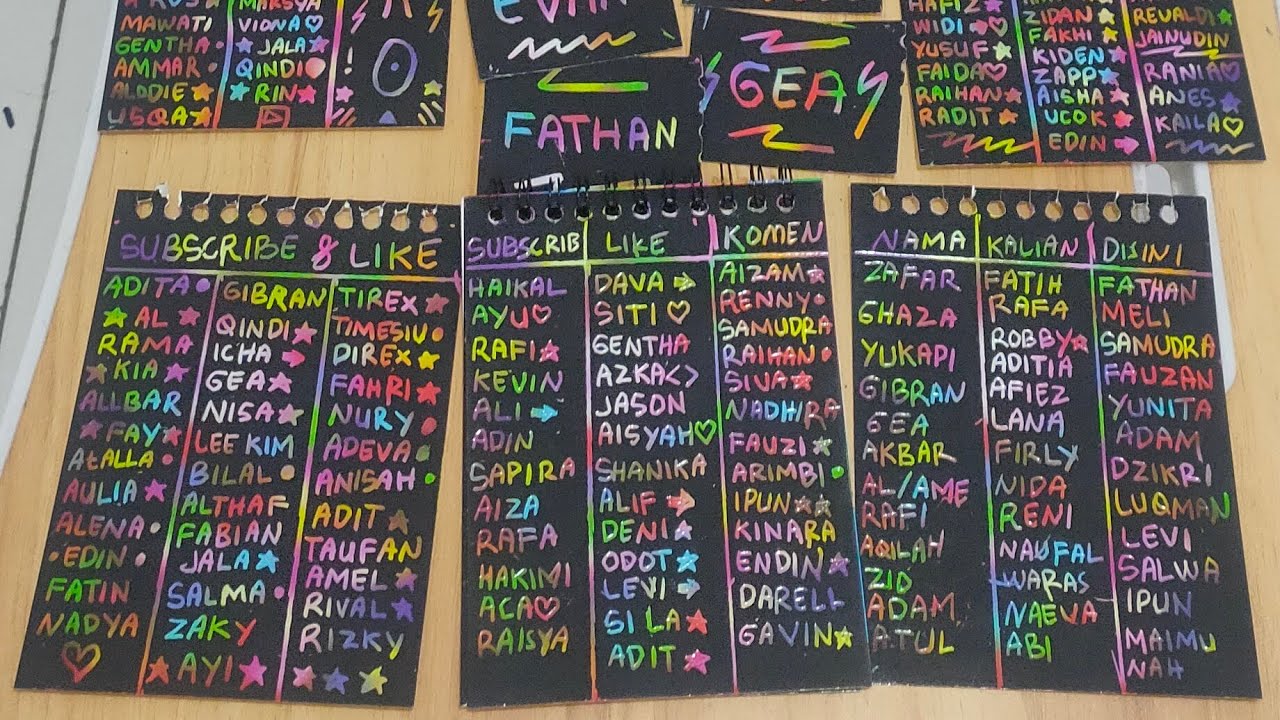 MAWATI
GENTHA
AMMAR
ALODIE
USQA
VIONA♡
JALA
QINDI
RIN
!
FATHAN
GEA
HAFIZ
WIDI
YUSUF
FAIDA♡
RAIHAN
RADIT
ZIDAN
FAKHI
KIDEN
ZAPP
AISHA
UCOK
EDIN
REVALDI
JAINUDIN
RANIA♡
ANES
KAILA♡
SUBSCRIBE & LIKE
ADITA
AL
RAMA
KIA
ALLBAR
FAY
ATALLA
AULIA
ALENA
EDIN
FATIN
NADYA
GIBRAN
QINDI
ICHA
GEA
NISA
LEE KIM
BILAL
ALTHAF
FABIAN
JALA
SALMA
ZAKY
AYI
TIREX
TIMESIU
DIREX
FAHRI
NURY
ADEVA
ANISAH
ADIT
TAUFAN
AMEL
RIVAL
RIZKY
SUBSCRIB LIKE KOMEN
HAIKAL
AYU♡
RAFI
KEVIN
ALI
ADIN
SAPIRA
AIZA
RAFA
HAKIMI
ACA♡
RAISYA
DAVA
SITI ♡
GENTHA
AZKA<>
JASON
AISYAH♡
SHANIKA
ALIF
DENI
ODOT
LEVI
SILA
ADIT
AIZAM
RENNY
SAMUDRA
RAIHAN
SIVA
NADHIRA
FAUZI
ARIMBI
IPUN
KINARA
ENDIN
DARELL
GAVIN
NAMA KALIAN DISINI
ZAFAR
GHAZA
YUKAPI
GIBRAN
GEA
AKBAR
AL/AME
RAFI
AQILAH
ZID
ADAM
ATUL
FATIH
RAFA
ROBBY
ADITIA
AFIEZ
LANA
FIRLY
NIDA
RENI
NAUFAL
WARAS
NAEVA
ABI
FATHAN
MELI
SAMUDRA
FAUZAN
YUNITA
ADAM
DZIKRI
LUQMAN
LEVI
SALWA
IPUN
MAIMU
NAH